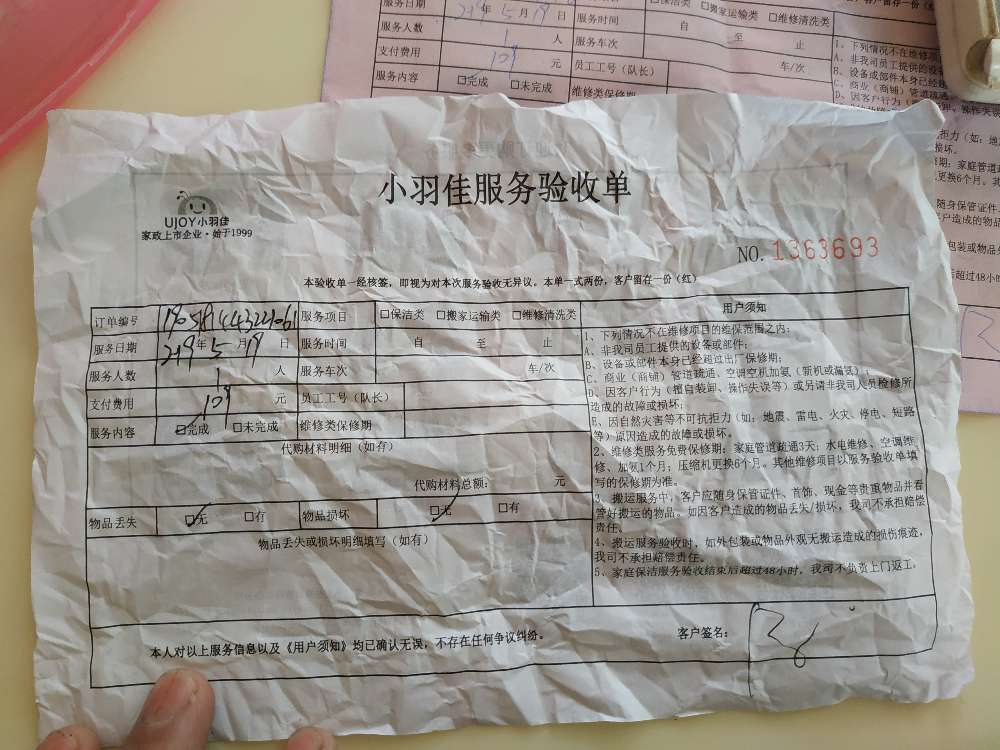 服务日期 年5月19日 服务时间 自 至 止
服务人数 1 人 服务车次 车/次
支付费用 109 元 员工工号（队长）
服务内容 □完成 □未完成 维修类保修期
□搬家运输类 □维修清洗类
UJOY小羽佳
家政上市企业·始于1999
小羽佳服务验收单
NO. 1363693
本验收单一经核签，即视为对本次服务验收无异议。本单一式两份，客户留存一份（红）
订单编号 服务项目 □保洁类 □搬家运输类 □维修清洗类
服务日期 年 5 月 19 日 服务时间 自 至 止
服务人数 1 人 服务车次 车/次
支付费用 109 元 员工工号（队长）
服务内容 □完成 □未完成 维修类保修期
代购材料明细（如有）
代购材料总额： 元
物品丢失 □无 □有 物品损坏 □无 □有
物品丢失或损坏明细填写（如有）
用户须知
1、下列情况不在维修项目的维保范围之内：
A、非我司员工提供的设备或部件；
B、设备或部件本身已经超过出厂保修期；
C、商业（商铺）管道疏通、空调空机加氨（新机或漏氨）；
D、因客户行为（擅自装卸、操作失误等）或另请非我司人员检修所
造成的故障或损坏；
E、因自然灾害等不可抗拒力（如：地震、雷电、火灾、停电、短路
等）原因造成的故障或损坏。
2、维修类服务免费保修期：家庭管道疏通3天；水电维修、空调维
修、加氨1个月；压缩机更换6个月。其他维修项目以服务验收单填
写的保修期为准。
3、搬运服务中，客户应随身保管证件、首饰、现金等贵重物品并看
管好搬运的物品。如因客户造成的物品丢失/损坏，我司不承担赔偿
责任。
4、搬运服务验收时，如外包装或物品外观无搬运造成的损伤痕迹，
我司不承担赔偿责任。
5、家庭保洁服务验收结束后超过48小时，我司不负责上门返工。
本人对以上服务信息以及《用户须知》均已确认无误，不存在任何争议纠纷。
客户签名：